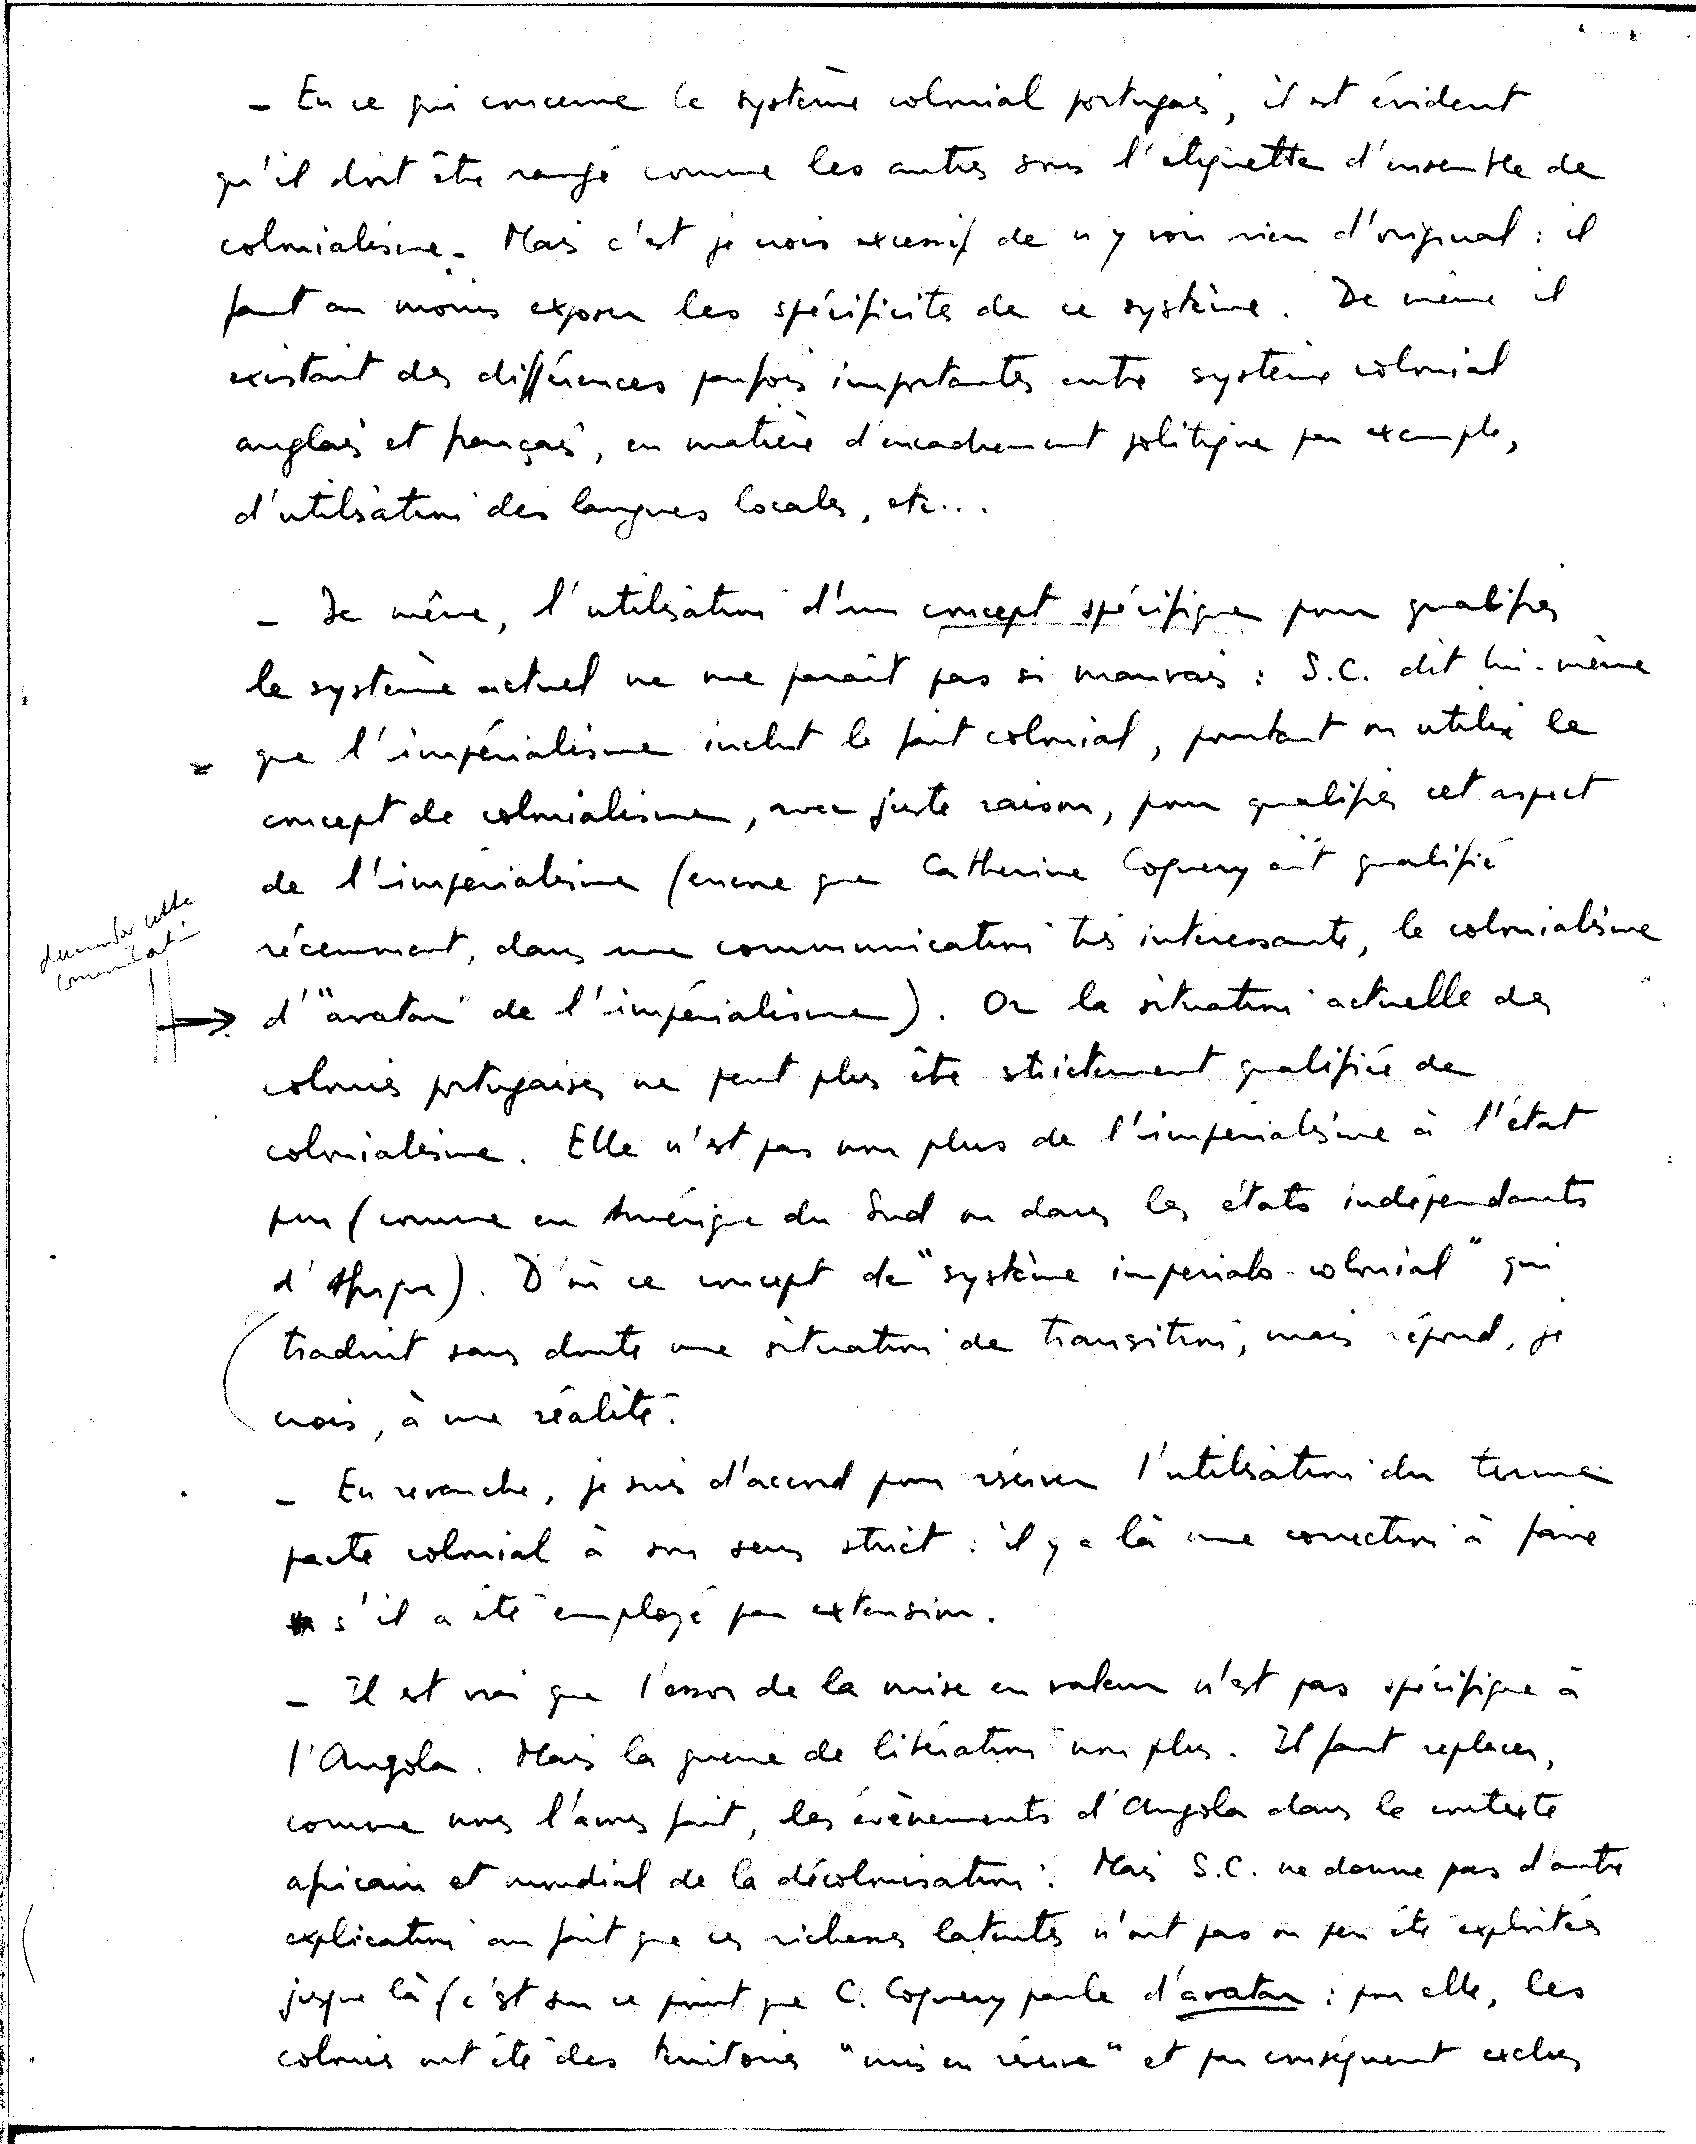 - En ce qui concerne le système colonial portugais, il est évident
qu'il doit être rangé comme les autres sous l'étiquette d'ensemble de
colonialisme. Mais c'est je crois excessif de n'y voir rien d'original : il
faut au moins exposer les spécificités de ce système. De même il
existait des différences parfois importantes entre système colonial
anglais et français, en matière d'encadrement politique par exemple,
d'utilisation des langues locales, etc...
- De même, l'utilisation d'un concept spécifique pour qualifier
le système actuel ne me paraît pas si mauvais : S.C. dit lui-même
que l'impérialisme inclut le fait colonial, pourtant on utilise le
concept de colonialisme, avec juste raison, pour qualifier cet aspect
de l'impérialisme (encore que Catherine Coquery ait qualifié
récemment, dans une communication très intéressante, le colonialisme
d'"avatar" de l'impérialisme). Or la situation actuelle des
colonies portugaises ne peut plus être strictement qualifiée de
colonialisme. Elle n'est pas non plus de l'impérialisme à l'état
pur (comme en Amérique du Sud ou dans les états indépendants
d'Afrique). D'où ce concept de "système imperialo-colonial" qui
traduit sans doute une situation de transition, mais répond, je
crois, à une réalité.
- En revanche, je suis d'accord pour réserver l'utilisation du terme
pacte colonial à son sens strict : il y a là une correction à faire
s'il a été employé par extension.
- Il est vrai que l'essor de la mise en valeur n'est pas spécifique à
l'Angola. Mais la guerre de libération non plus. Il faut replacer,
comme nous l'avons fait, les évènements d'Angola dans le contexte
africain et mondial de la décolonisation. Mais S.C. ne donne pas d'autre
explication au fait que ces richesses latentes n'ont pas ou peu été exploitées
jusque là (c'est sur ce point que C. Coquery parle d'avatar : pour elle, les
colonies ont été des territoires "mis en réserve" et par conséquent exclus
demander cette
communication